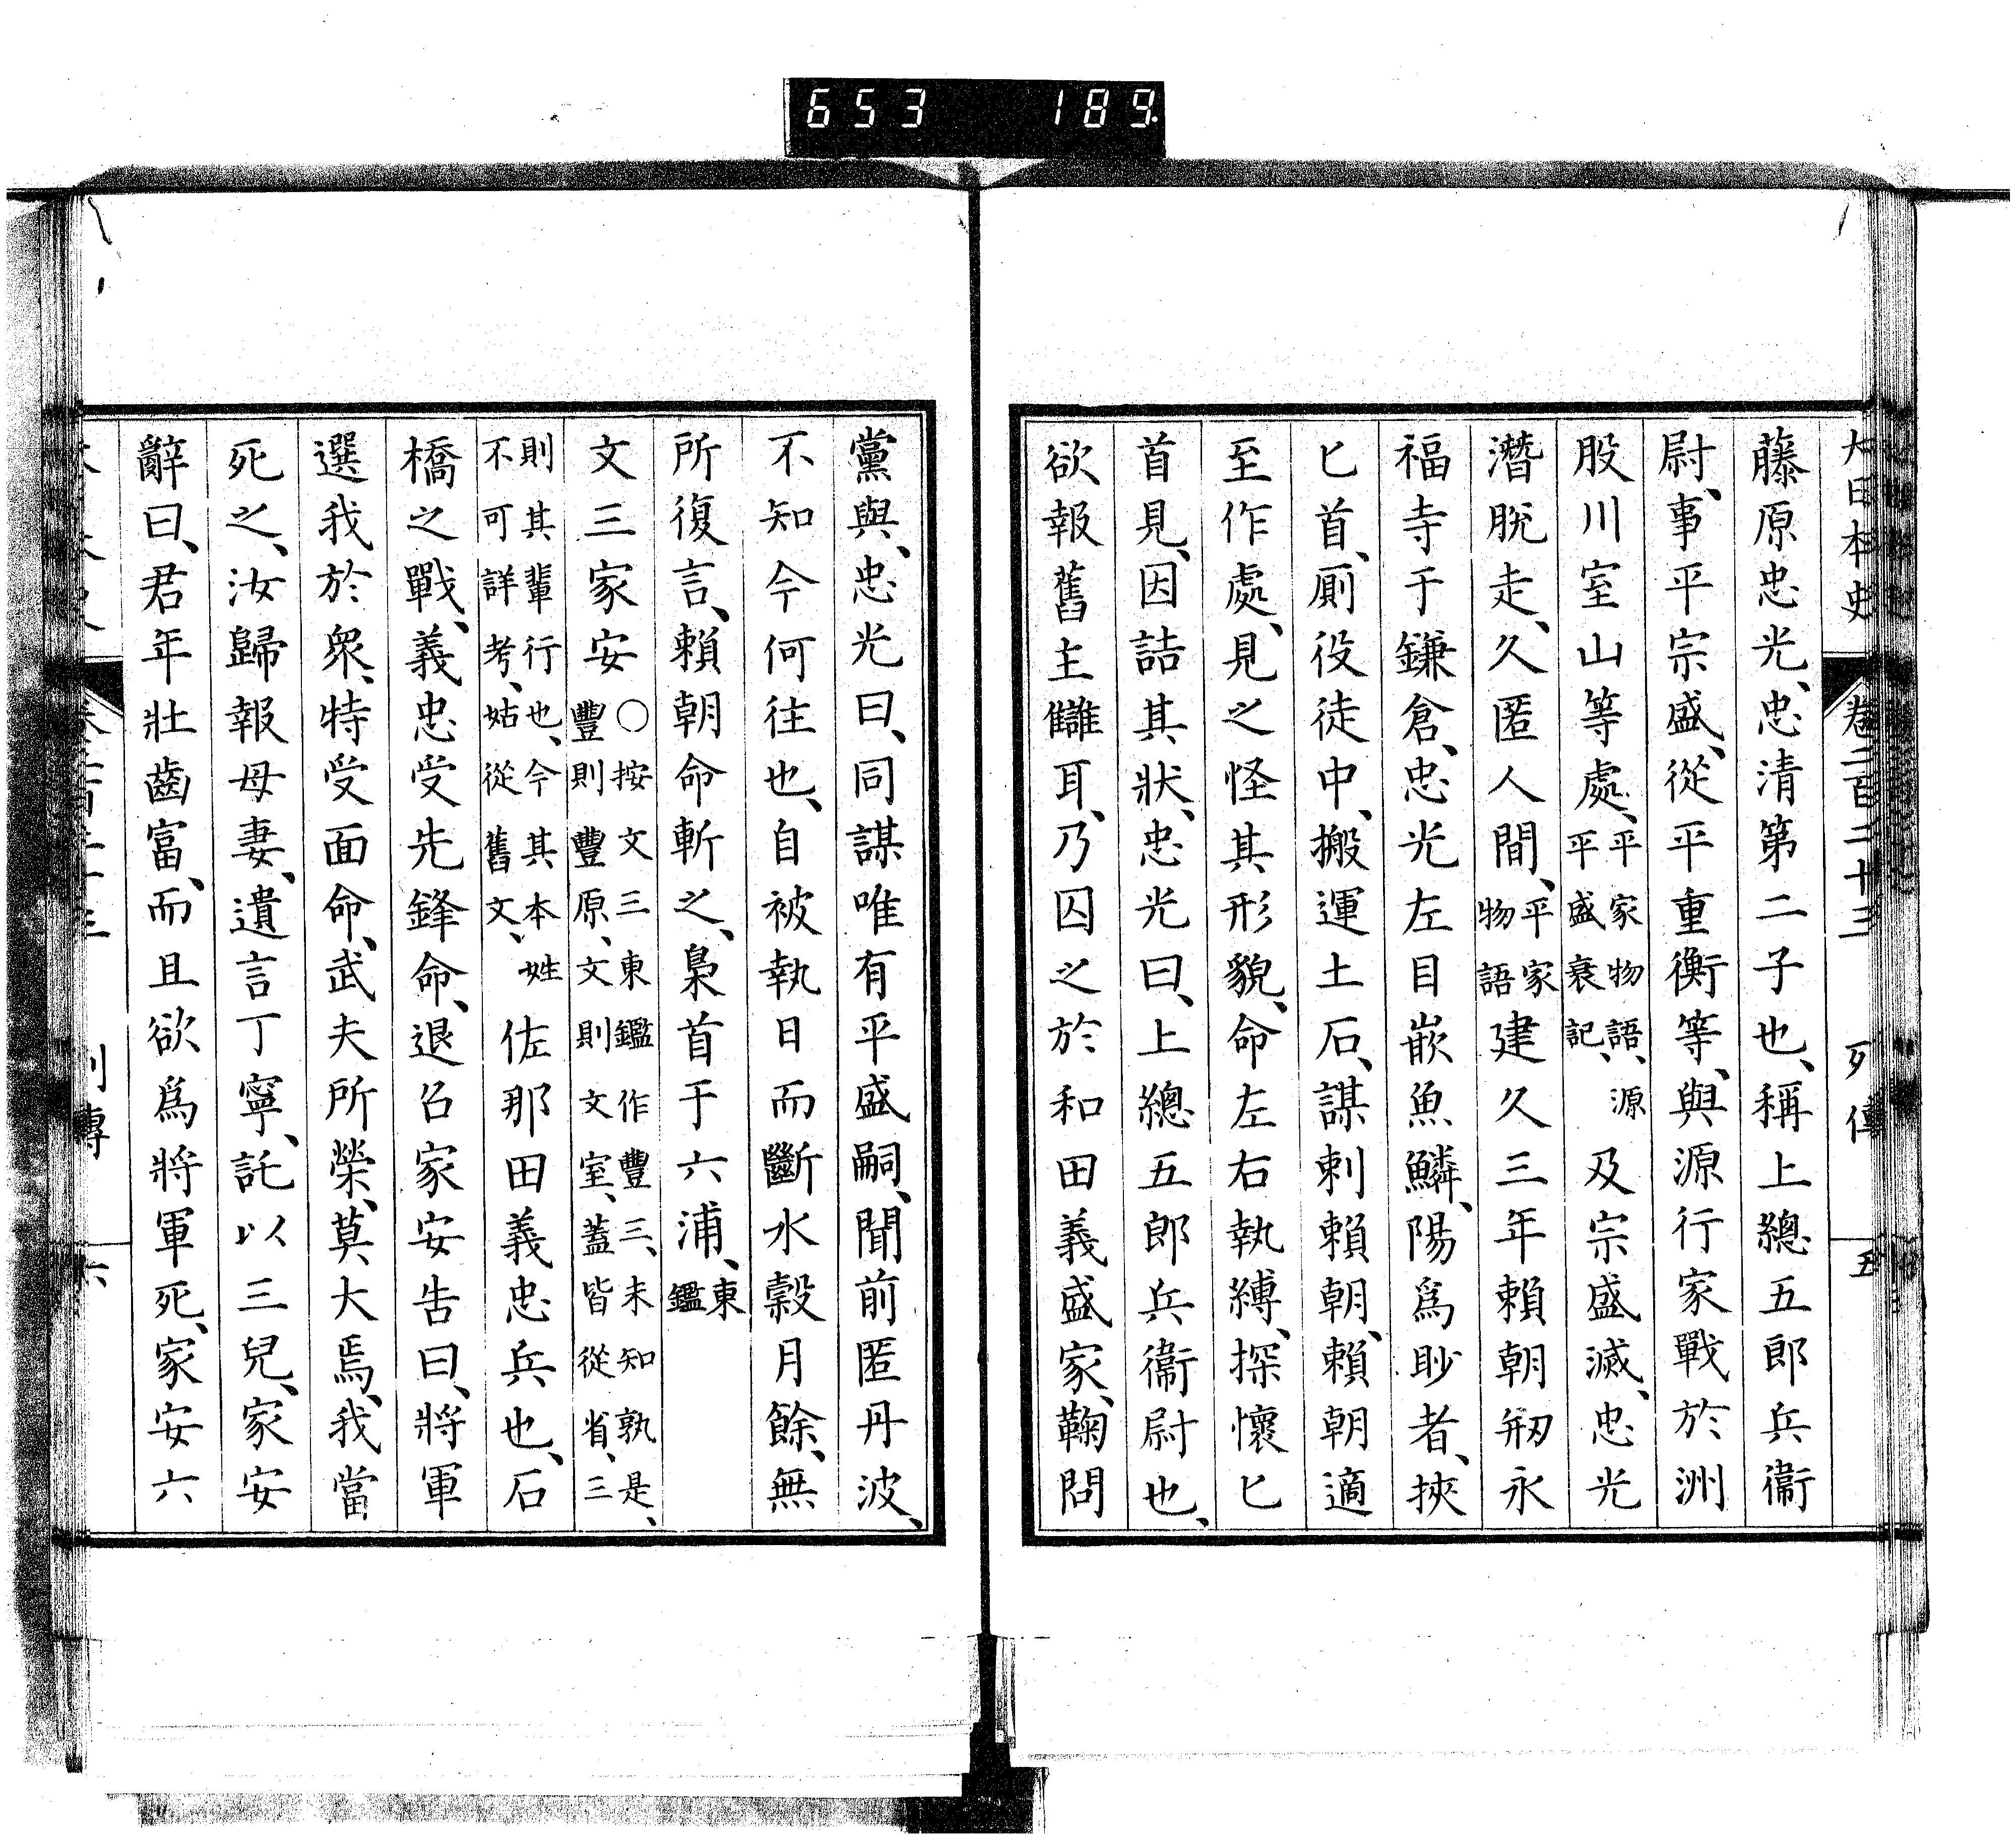 653 189
大日本史 卷二百二十三 列傳 五
藤原忠光、忠清第二子也、稱上總五郎兵衞
尉、事平宗盛、從平重衡等、與源行家戰於洲
股川室山等處、平家物語、源平盛衰記、及宗盛滅、忠光
潛脫走、久匿人間、平家物語建久三年賴朝剏永
福寺于鎌倉、忠光左目嵌魚鱗、陽爲眇者、挾
匕首、厠役徒中、搬運土石、謀刺賴朝、賴朝適
至作處、見之怪其形貌、命左右執縛、探懷匕
首見、因詰其狀、忠光曰、上總五郎兵衞尉也、
欲報舊主讎耳、乃囚之於和田義盛家、鞠問
黨與、忠光曰、同謀唯有平盛嗣、聞前匿丹波、
不知今何往也、自被執日而斷水穀月餘、無
所復言、賴朝命斬之、梟首于六浦、東鑑
文三家安○按文三東鑑作豐三、未知孰是、豐則豐原、文則文室、蓋皆從省、三
則其輩行也、今其本姓不可詳考、姑從舊文、佐那田義忠兵也、石
橋之戰、義忠受先鋒命、退召家安告曰、將軍
選我於衆、特受面命、武夫所榮、莫大焉、我當
死之、汝歸報母妻、遺言丁寧、託以三兒、家安
辭曰、君年壯齒富、而且欲爲將軍死、家安六
列傳 六